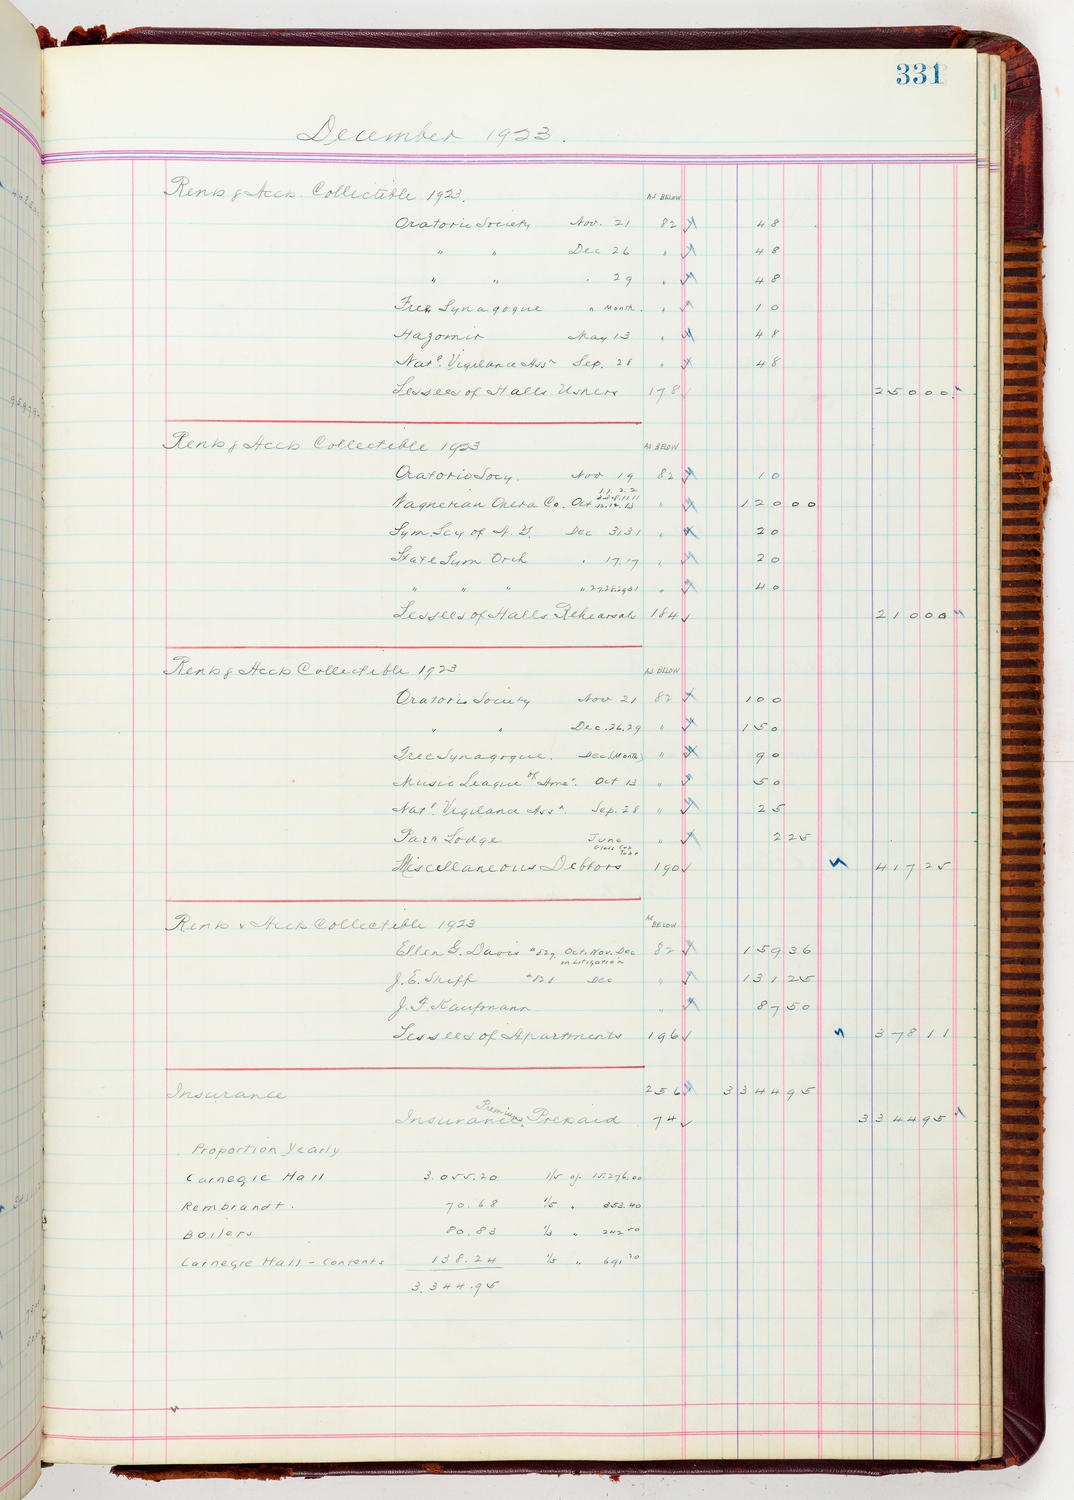 331
December 1923.
Rents & Accts Collectible 1923. AS BELOW
Oratorio Society Nov. 21 82 48
" " Dec 26 " 48
" " " 29 " 48
Free Synagogue " Month. " 10
Hazomir May 13 " 48
Nat'l. Vigilance Assn Sep. 28 " 48
Lessees of Halls. Ushers 178 25000
Rents & Accts Collectible 1923 AS BELOW
Oratorio Socy. Nov 19 82 10
Wagnerian Opera Co. Oct " 12000
Sym. Scy of N.Y. Dec 31.31 " 20
State Sym Orch " 17.17 " 20
" " " " 27.28.29.31 " 40
Lessees of Halls Rehearsals 184 21000
Rents & Accts Collectible 1923 AS BELOW
Oratorio Society Nov 21 82 100
" " Dec. 26.29 " 150
Free Synagogue. Dec (Month) " 90
Music League of Ame'. Oct 13 " 50
Nat'l. Vigilance Assn. Sep. 28 " 25
Lodge June " 225
Miscellaneous Debtors 190 41725
Rents & Accts Collectible 1923 AS BELOW
Ellen G. Davis #827 Oct. Nov. Dec 82 15936
in Litigation
J. E. Shiff Dec " 13125
J. F. Kaufmann " 8750
Lessees of Apartments 196 37811
Insurance 256 334495
Insurance Premiums Prepaid 74 334495
Proportion Yearly
Carnegie Hall 3.055.20 1/5 of 15.276.00
Rembrandt. 70.68 1/5 " 353.40
Boilers 80.83 1/3 " 242.50
Carnegie Hall - Contents 138.24 1/5 " 691.20
3.344.95